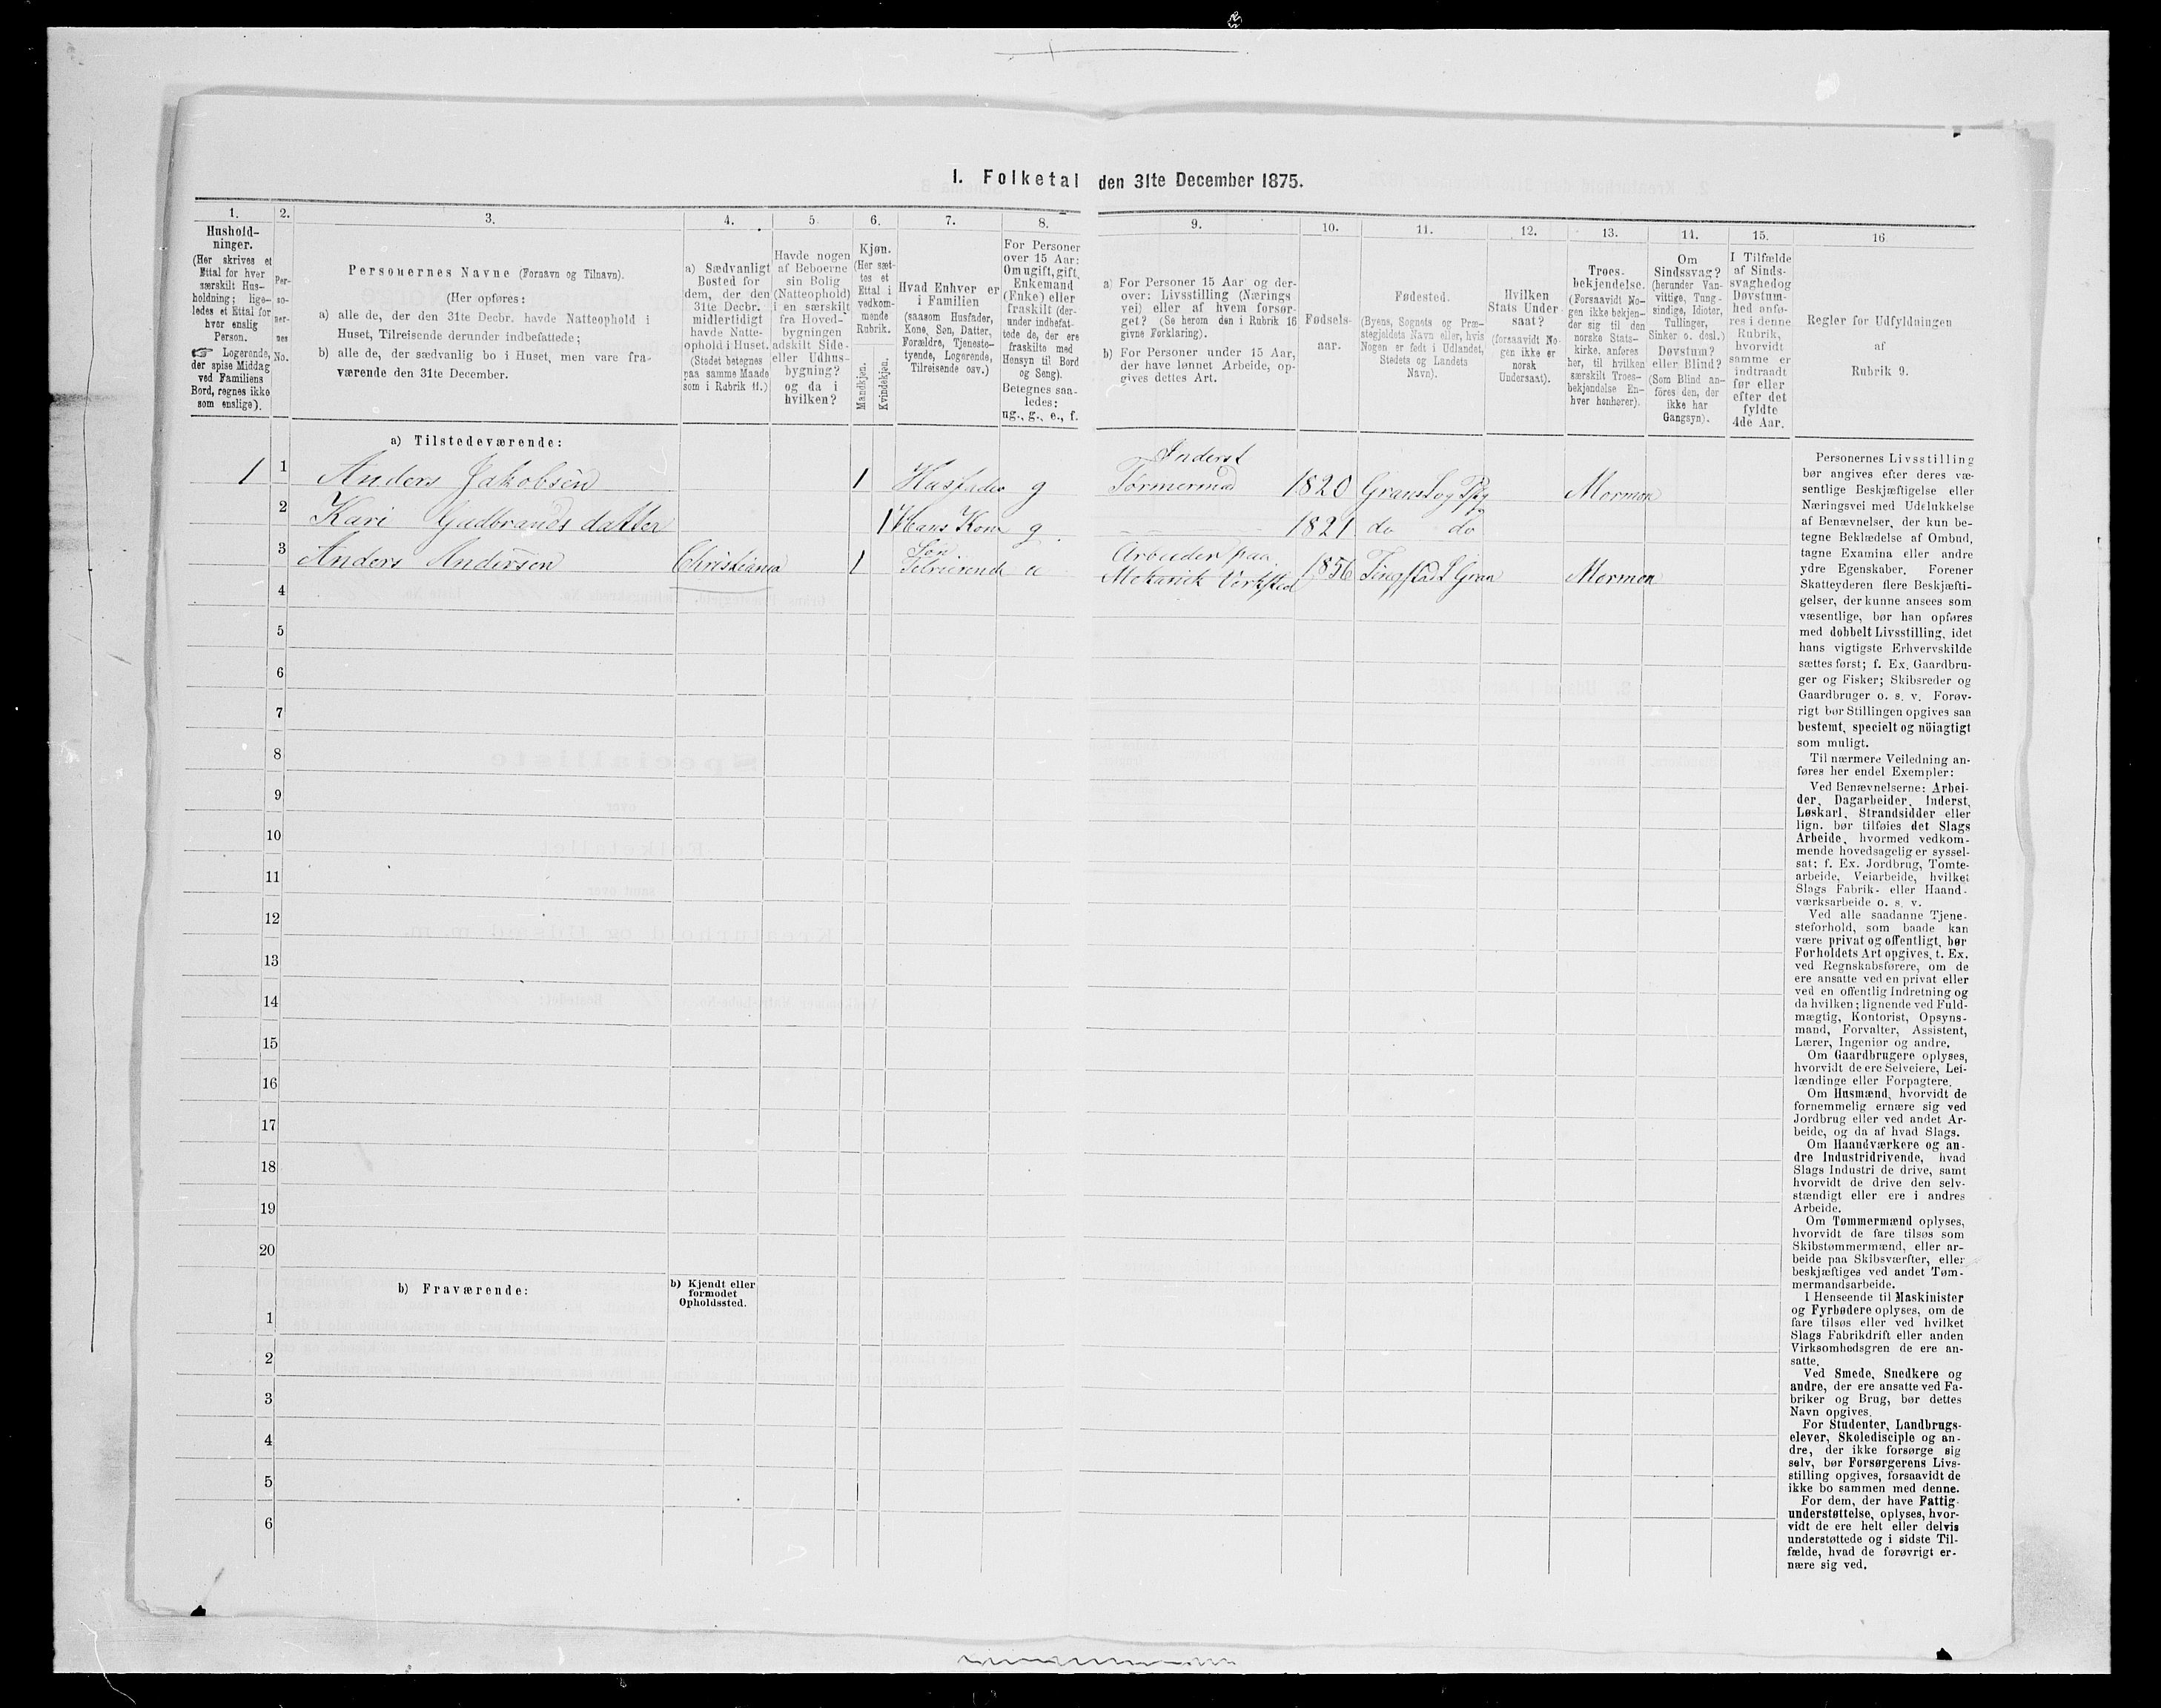 I. Folketal den 31te December 1875.
1.
Hushold-
ninger.
(Her skrives et
Ettal for hver
særskilt Hus-
holdning; lige-
ledes et Ettal for
hver enslig
Person.
☞ Logerende,
der spise Middag
ved Familiens
Bord, regnes ikke
som enslige).
2.
Per-
so-
ner-
nes
No.
3.
Personernes Navne (Fornavn og Tilnavn).
(Her opføres:
a) alle de, der den 31te Decbr. havde Natteophold i
Huset, Tilreisende derunder indbefattede;
b) alle de, der sædvanlig bo i Huset, men vare fra-
værende den 31te December.
4.
a) Sædvanligt
Bosted for
dem, der den
31te Decbr.
midlertidigt
havde Natte-
ophold i Huset.
(Stedet betegnes
paa samme Maade
som i Rubrik 11.)
5.
Havde nogen
af Beboerne
sin Bolig
(Natteophold)
i en særskilt
fra Hoved-
bygningen
adskilt Side-
eller Udhus-
bygning?
og da i
hvilken?
6.
Kjøn.
(Her sæt-
tes et
Ettal i
vedkom-
mende
Rubrik.
Mandkjøn.
Kvindekjøn.
7.
Hvad Enhver er
i Familien
(saasom Husfader,
Kone, Søn, Datter,
Forældre, Tjeneste-
tyende, Logerende,
Tilreisende osv.)
8.
For Personer
over 15 Aar:
Om ugift, gift,
Enkemand
(Enke) eller
fraskilt (der-
under indbefat-
tede de, der ere
fraskilte med
Hensyn til Bord
og Seng).
Betegnes saa-
ledes:
ug., g., e., f.
9.
a) For Personer 15 Aar og der-
over: Livsstilling (Nærings
vei) eller af hvem forsør-
get? (Se herom den i Rubrik 16
givne Forklaring).
b) For Personer under 15 Aar,
der have lønnet Arbeide, op-
gives dettes Art.
10.
Fødsels-
aar.
11.
Fødested.
(Byens, Sognets og Præ-
stegjeldets Navn eller, hvis
Nogen er født i Udlandet,
Stedets og Landets
Navn).
12.
Hvilken
Stats Under
saat?
(forsaavidt No-
gen ikke er
norsk
Undersaat).
13.
Troes-
bekjendelse.
(Forsaavidt No-
gen ikke bekjen-
der sig til den
norske Stats-
kirke, anføres
her, til hvilken
særskilt Troes-
bekjendelse En-
hver henhører).
14.
Om
Sindssvag?
(herunder Van-
vittige, Tung-
sindige, Idioter,
Tullinger,
Sinker o. desl.)
Døvstum?
eller Blind?
(Som Blind an-
føres den, der
ikke har
Gangsyn).
15.
I Tilfælde
af Sinds-
svaghedog
Døvstum-
hed anfø-
res i denne
Rubrik,
hvorvidt
samme er
indtraadt
før eller
efter det
fyldte
4de Aar.
16
Regler for Udfyldningen
af
Rubrik 9.
a) Tilstedeværende:
Inderst
1 1 Anders Jakobsen 1 Husfader g Tørmermad 1820 Mormon
2 Kari Gudbrandsdatter 1 Hans Kone g 1821 do do
3 Anders Andersen Christiania 1 Søn Arbeider paa
Mekanisk Verksted 1856 Tingelstad Gran Mormon
4
5
6
7
8
9
10
11
12
13
14
15
16
17
18
19
20
b) Fraværende:
b) Kjendt eller
formodet
Opholdssted.
1
2
3
4
5
6
Personernes Livsstilling
bør angives efter deres væ-
sentlige Beskjæftigelse eller
Næringsvei med Udelukkelse
af Benævnelser, der kun be-
tegne Beklædelse af Ombud,
tagne Examina eller andre
ydre Egenskaber. Forener
Skatteyderen flere Beskjæfti-
gelser, der kunne ansees som
væsentlige, bør han opføres
med dobbelt Livsstilling, idet
hans vigtigste Erhvervskilde
sættes først; f. Ex. Gaardbru-
ger og Fisker; Skibsreder og
Gaardbruger o. s. v. Forøv-
rigt bør Stillingen opgives saa
bestemt, specielt og nöiagtigt
som muligt.
Til nærmere Veiledning an-
føres her endel Exempler:
Ved Benævnelserne: Arbei-
der, Dagarbeider, Inderst,
Løskarl, Strandsidder eller
lign. bør tilføies det Slags
Arbeide, hvormed vedkom-
mende hovedsagelig er syssel-
sat; f. Ex. Jordbrug, Tomte-
arbeide, Veiarbeide, hvilket
Slags Fabrik- eller Haand-
værksarbeide o. s. v.
Ved alle saadanne Tjene-
steforhold, som baade kan
være privat og offentligt, bør
Forholdets Art opgives, f. Ex.
ved Regnskabsførere, om de
ere ansatte ved en privat eller
ved en offentlig Indretning og
da hvilken; lignende ved Fuld-
mægtig, Kontorist, Opsyns-
mand, Forvalter, Assistent,
Lærer, Ingeniør og andre.
Om Gaardbrugere oplyses,
hvorvidt de ere Selveiere, Lei-
lændinge eller Forpagtere.
Om Husmænd, hvorvidt de
fornemmelig ernære sig ved
Jordbrug eller ved andet Ar-
beide, og da af hvad Slags.
Om Haandværkere og an-
dre Industridrivende, hvad
Slags Industri de drive, samt
hvorvidt de drive den selv-
stændigt eller ere i andres
Arbeide.
Om Tømmermænd oplyses,
hvorvidt de fare tilsøs som
Skibstømmermænd, eller ar-
beide paa Skibsværfter, eller
beskjæftiges ved andet Tøm-
mermandsarbeide.
I Henseende til Maskinister
og Fyrbødere oplyses, om de
fare tilsøs eller ved hvilket
Slags Fabrikdrift eller anden
Virksomhedsgren de ere an-
satte.
Ved Smede, Snedkere og
andre, der ere ansatte ved Fa-
briker og Brug, bør dettes
Navn opgives.
For Studenter, Landbrugs-
elever, Skoledisciple og an-
dre, der ikke forsørge sig
selv, bør Forsørgerens Livs-
stilling opgives, forsaavidt de
ikke bo sammen med denne.
For dem, der have Fattig-
understøttelse, oplyses, hvor-
vidt de ere helt eller delvis
understøttede og i sidste Til-
fælde, hvad de forøvrigt er-
nære sig ved.